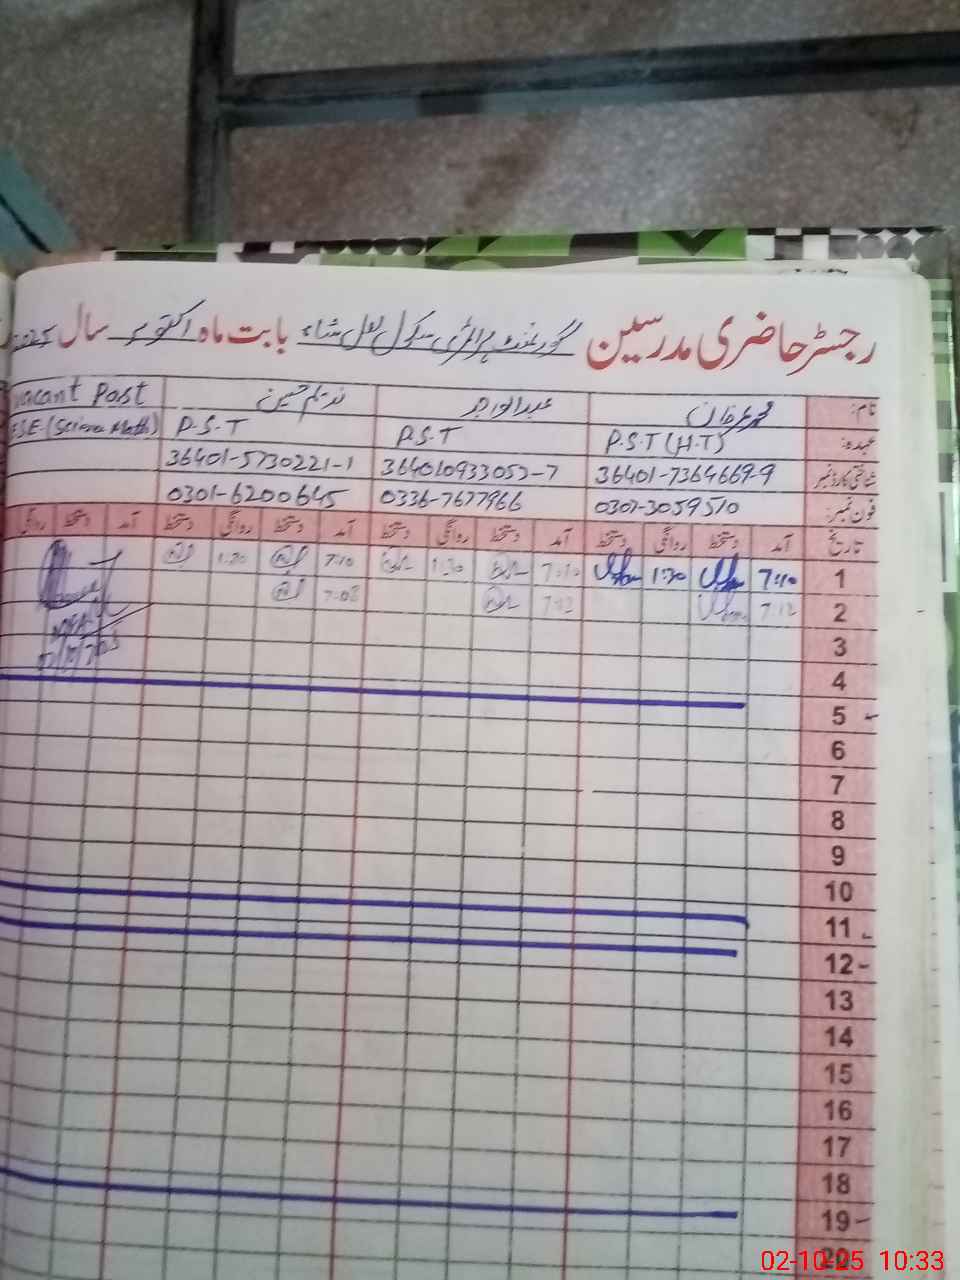 رجسٹر حاضری مدرسین گورنمنٹ پرائمری سکول لعل شاہ بابت ماہ اکتوبر سال 2025
نام: محمد عرفان عبدالواجد ندیم حسین vacant Post
عہدہ: P.S.T (H.T) P.S.T P.S.T ESE (Science Math)
شناختی کارڈ نمبر 36401-7364669-9 364010933053-7 36401-5730221-1
فون نمبر: 0307-3059510 0336-7677966 0301-6200645
تاریخ آمد دستخط روانگی دستخط آمد دستخط روانگی دستخط آمد دستخط روانگی دستخط آمد دستخط روانگی
1 7:10 1:30 7:10 1:30 7:10 1:30
2 7:12 7:12 7:08
3
4
5
6
7
8
9
10
11
12
13
14
15
16
17
18
19
20
02-10-25 10:33